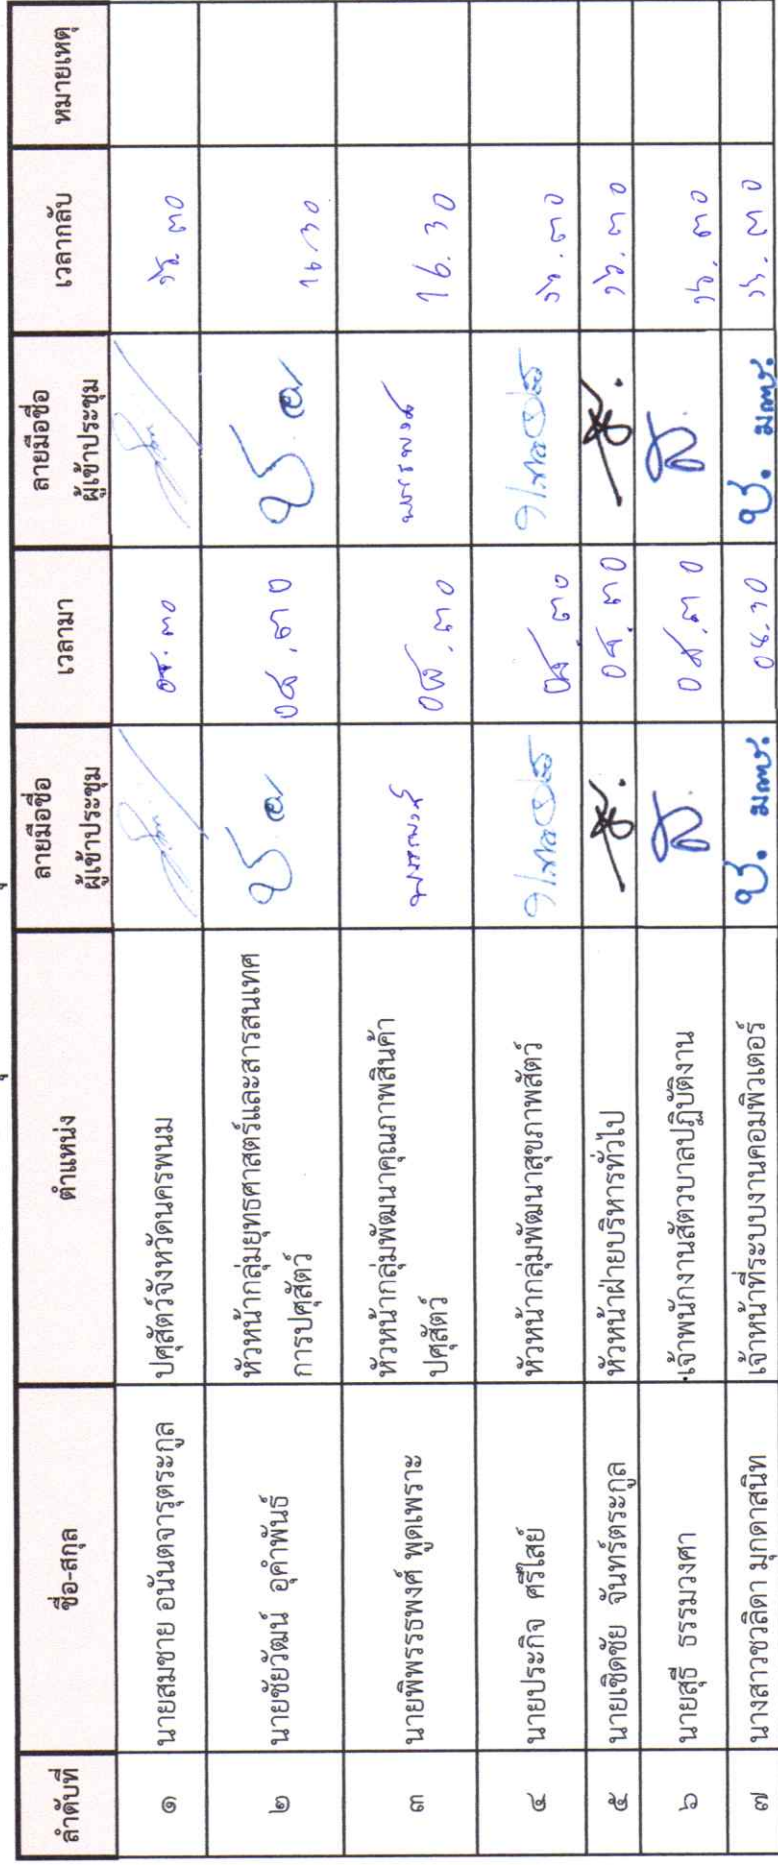 ลำดับที่ ชื่อ-สกุล ตำแหน่ง ลายมือชื่อ เวลามา ลายมือชื่อ เวลากลับ หมายเหตุ
ผู้เข้าประชุม ผู้เข้าประชุม
๑ นายสมชาย อนันตจารุตระกูล ปศุสัตว์จังหวัดนครพนม ๐๘.๓๐ ๑๖.๓๐
๒ นายชัยวัฒน์ อุคำพันธ์ หัวหน้ากลุ่มยุทธศาสตร์และสารสนเทศ ๐๘.๓๐ 16.30
การปศุสัตว์
๓ นายพิพรรธพงศ์ พูดเพราะ หัวหน้ากลุ่มพัฒนาคุณภาพสินค้า ๐๘.๓๐ 16.30
ปศุสัตว์
๔ นายประกิจ ศรีไสย์ หัวหน้ากลุ่มพัฒนาสุขภาพสัตว์ ๐๘.๓๐ ๑๖.๓๐
๕ นายเชิดชัย จันทร์ตระกูล หัวหน้าฝ่ายบริหารทั่วไป ๐๘.๓๐ ๑๖.๓๐
๖ นายสุธี ธรรมวงศา เจ้าพนักงานสัตวบาลปฏิบัติงาน ๐๘.๓๐ ๑๖.๓๐
๗ นางสาวชวลิดา มุกดาสนิท เจ้าหน้าที่ระบบงานคอมพิวเตอร์ ๑๖.๓๐